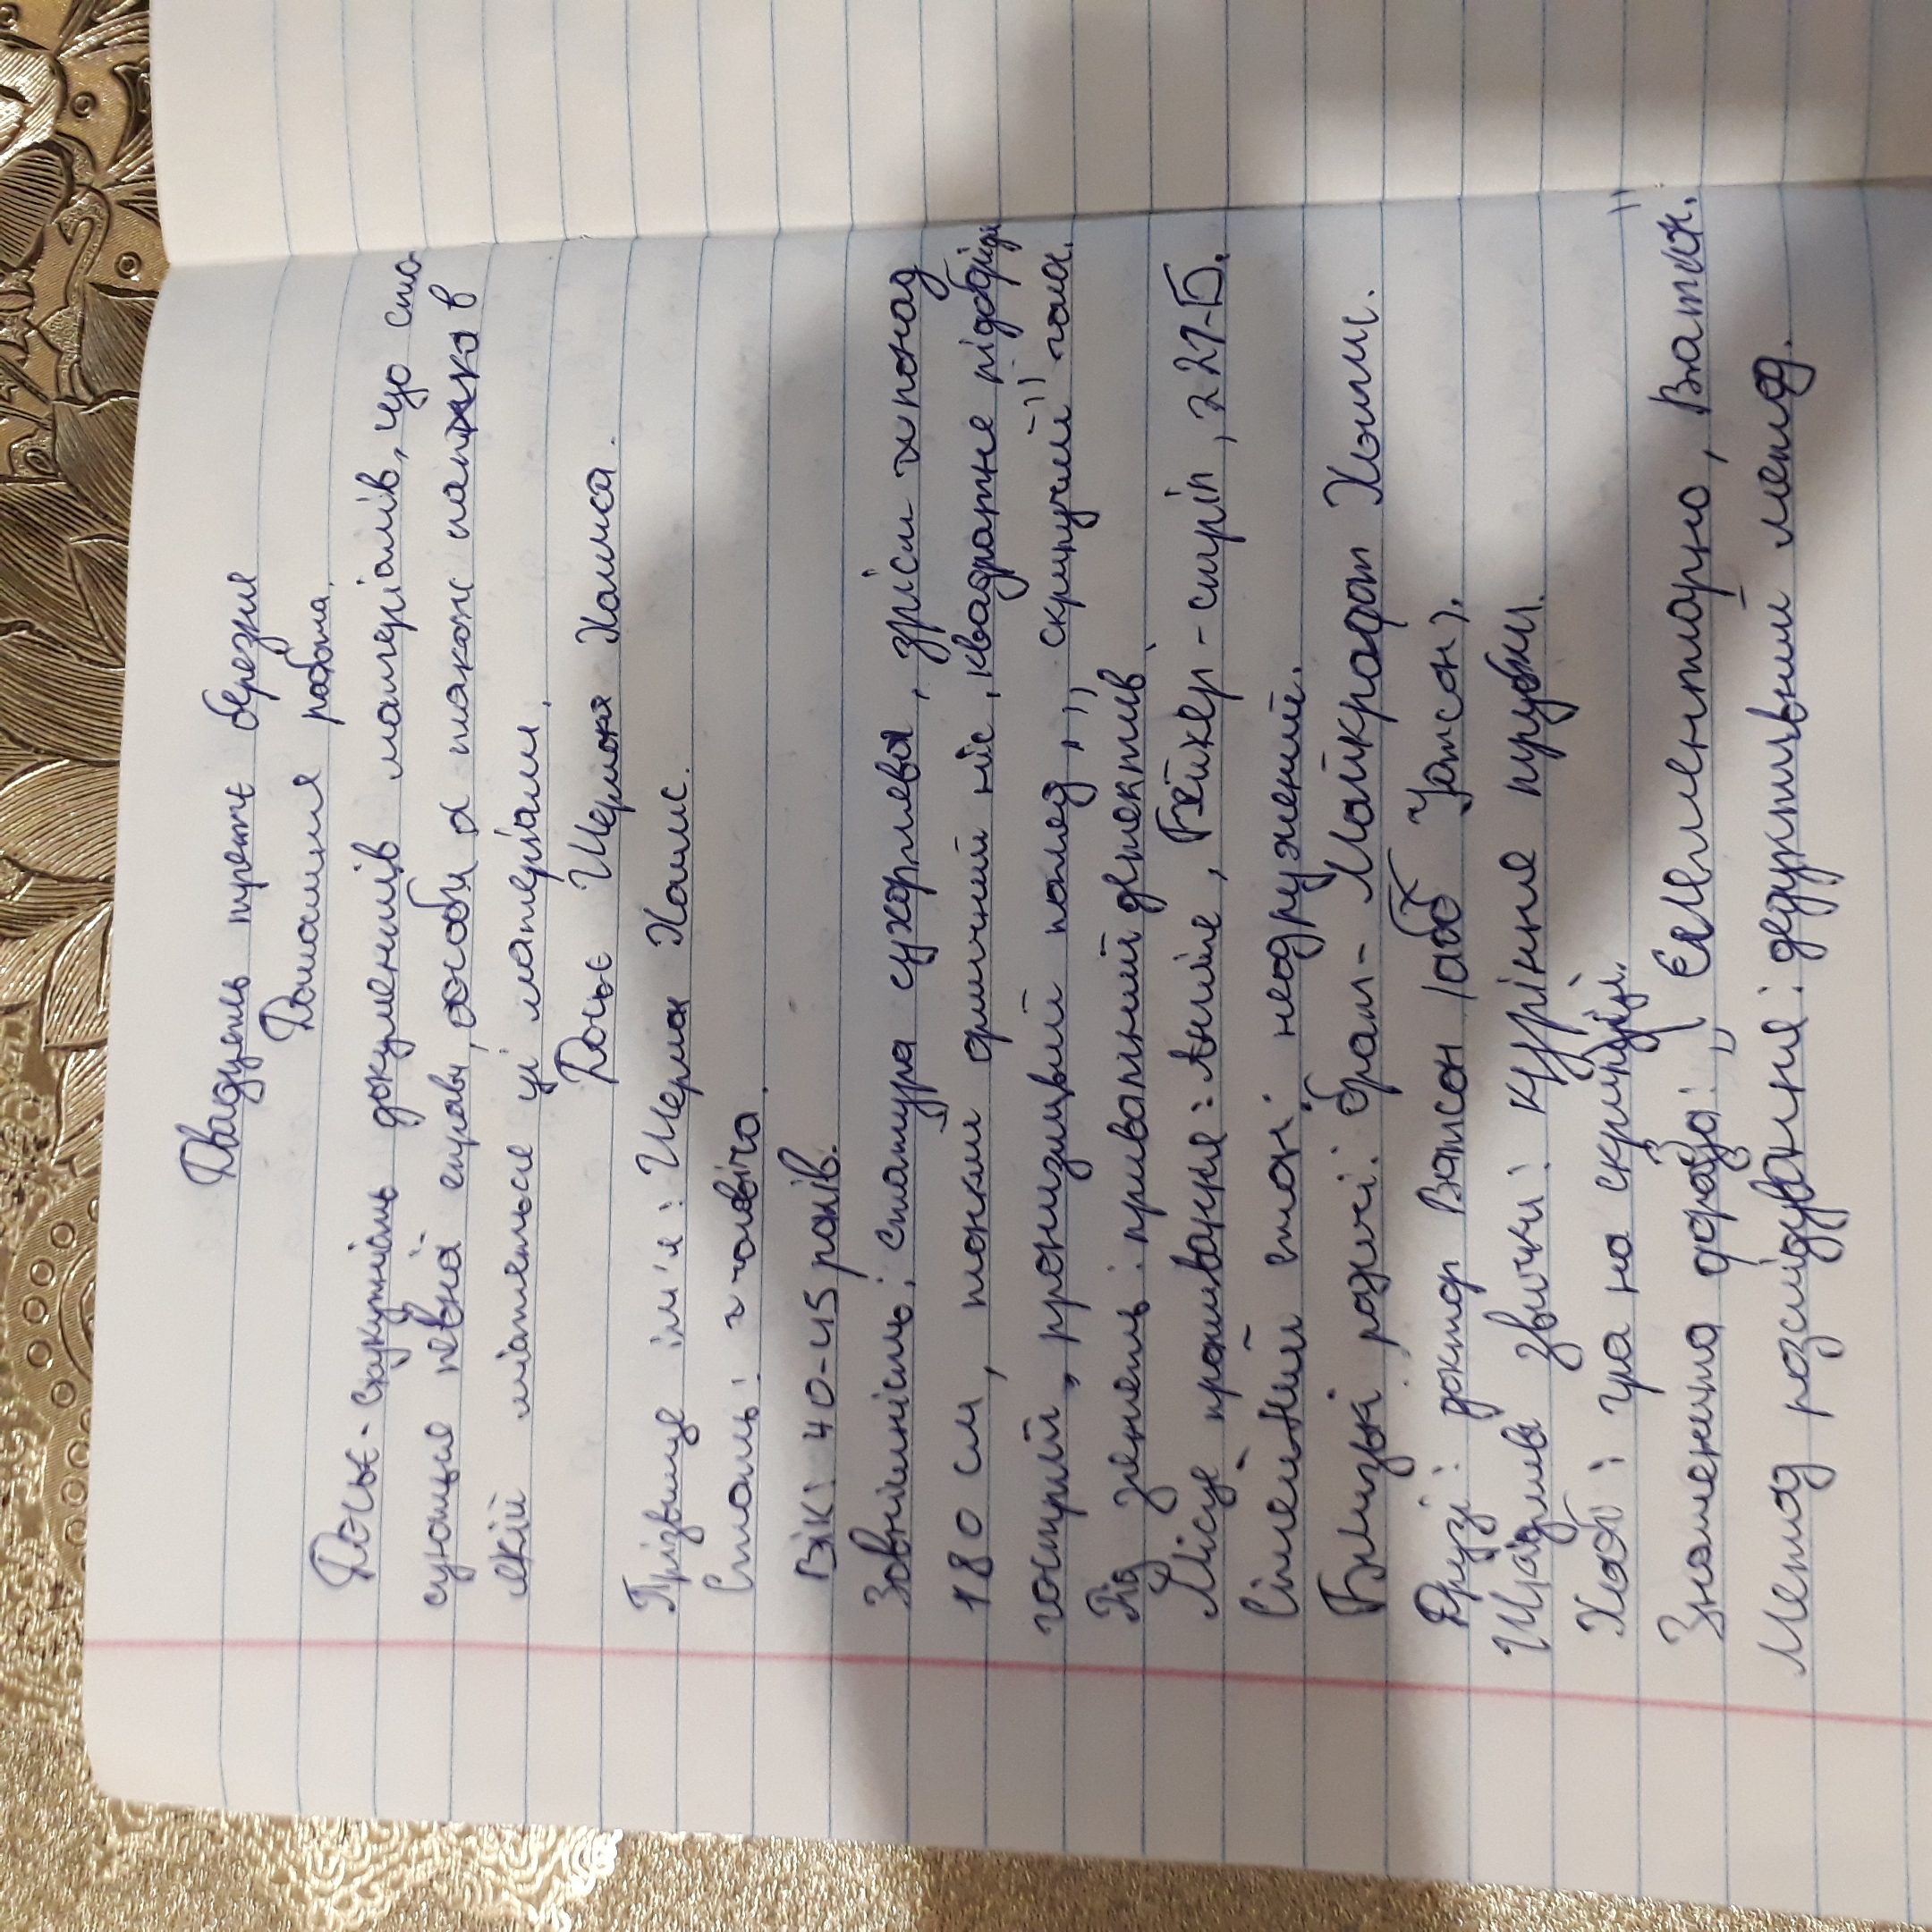 Двадцять третє березня
Домашня робота.
Досьє - сукупність документів матеріалів, що сто-
суються певної справи, особи а також папка в
якій містяться ці матеріали.
Досьє Шерлока Холмса.
Прізвище ім'я: Шерлок Холмс.
Стать: чоловіча.
Вік: 40-45 років.
Зовнішність: статура сухорлява, зріст понад
180 см, тонкий орлиний ніс, квадратне підборід
гострий, пронизливий погляд, ,,скрипучий" голос.
Рід занять: приватний детектив.
Місце проживання: Англія, Бейкер-стріт, 221-Б.
Сімейний стан: неодружений.
Близькі родичі: брат - Майкрофт Холмс.
Друзі: доктор Ватсон (або Уотсон).
Шкідливі звички: куріння трубки.
Хобі: гра на скрипці.
Знаменита фраза: ,,Елементарно, Ватсон."
Метод розслідування: дедуктивний метод.